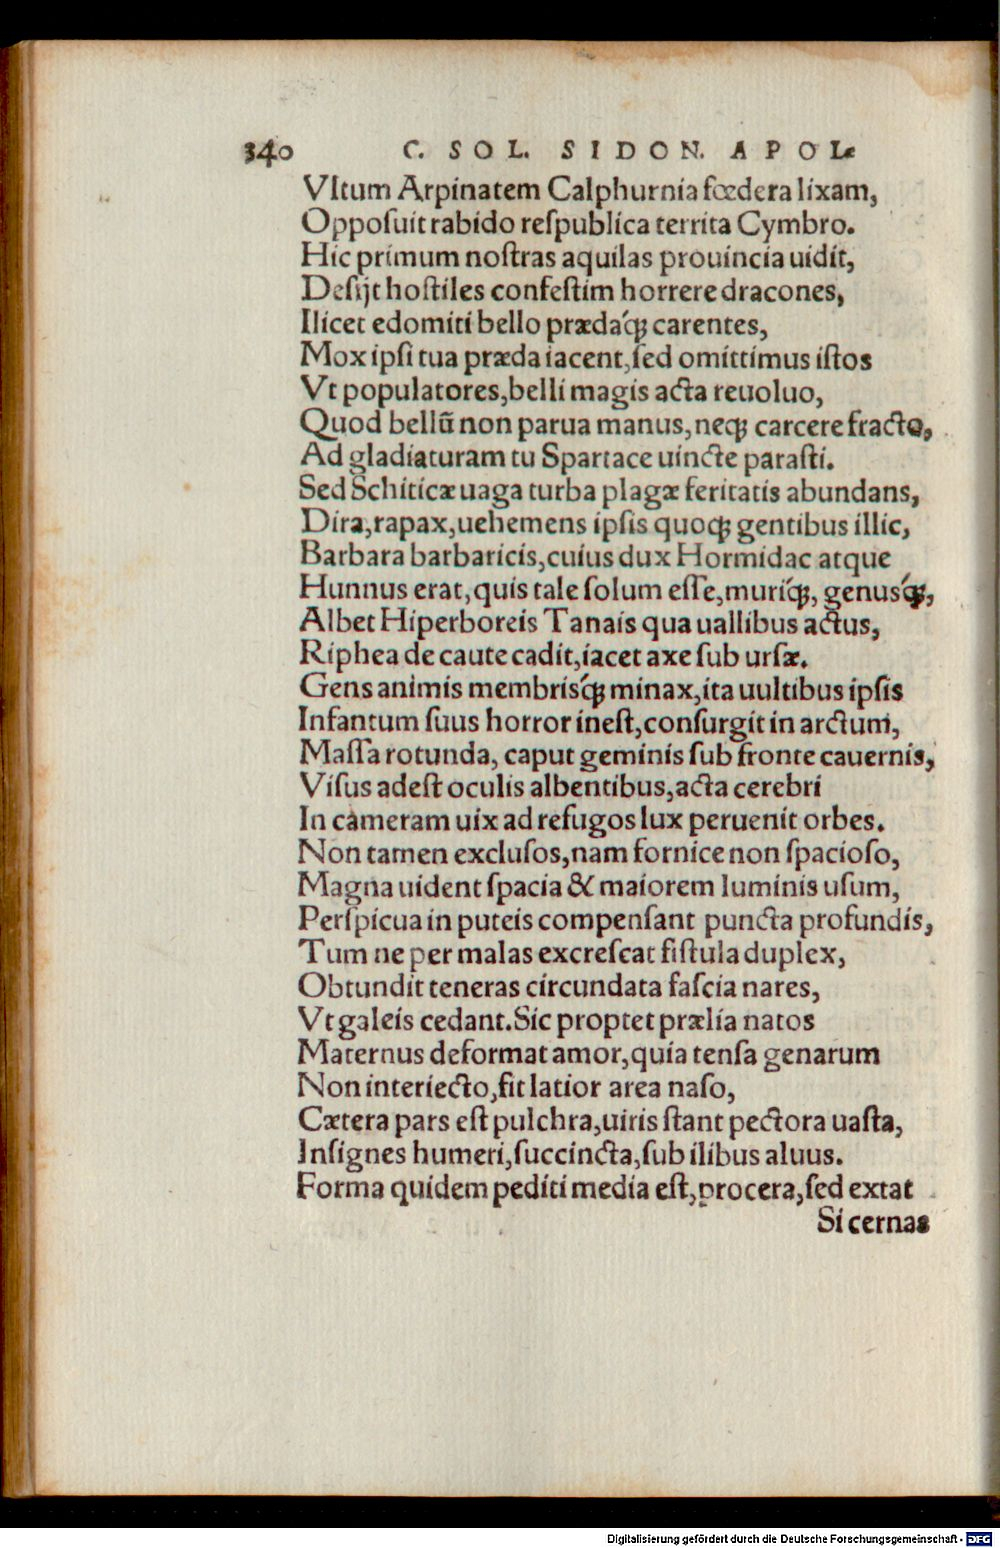 340 C. SOL. SIDON. APOL.
Vltum Arpinatem Calphurnia fœdera lixam,
Opposuit rabido reſpublica territa Cymbro.
Hic primum noſtras aquilas prouincia uidit,
Deſijt hoſtiles confeſtim horrere dracones,
Ilicet edomiti bello prædaq́ꝫ carentes,
Mox ipſi tua præda iacent,ſed omittimus iſtos
Vt populatores,belli magis acta reuoluo,
Quod bellũ non parua manus,neqꝫ carcere fracto,
Ad gladiaturam tu Spartace uincte paraſti.
Sed Schiticæ uaga turba plagæ feritatis abundans,
Dira,rapax,uehemens ipſis quoqꝫ gentibus illic,
Barbara barbaricis,cuius dux Hormidac atque
Hunnus erat,quis tale ſolum eſſe,muriq́ꝫ, genusq́ꝫ,
Albet Hiperboreis Tanais qua uallibus actus,
Riphea de caute cadit,iacet axe ſub urſæ.
Gens animis membrisq́ꝫ minax,ita uultibus ipſis
Infantum ſuus horror ineſt,conſurgit in arctum,
Maſſa rotunda, caput geminis ſub fronte cauernis,
Viſus adeſt oculis albentibus,acta cerebri
In cameram uix ad refugos lux peruenit orbes.
Non tamen excluſos,nam fornice non ſpacioſo,
Magna uident ſpacia & maiorem luminis uſum,
Perſpicua in puteis compenſant puncta profundis,
Tum ne per malas excreſcat fiſtula duplex,
Obtundit teneras circundata faſcia nares,
Vt galeis cedant.Sic proptet prælia natos
Maternus deformat amor,quia tenſa genarum
Non interiecto,fit latior area naſo,
Cætera pars eſt pulchra,uiris ſtant pectora uaſta,
Inſignes humeri,ſuccincta,ſub ilibus aluus.
Forma quidem pediti media eſt,procera,ſed extat
Si cernas
Digitalisierung gefördert durch die Deutsche Forschungsgemeinschaft - DFG